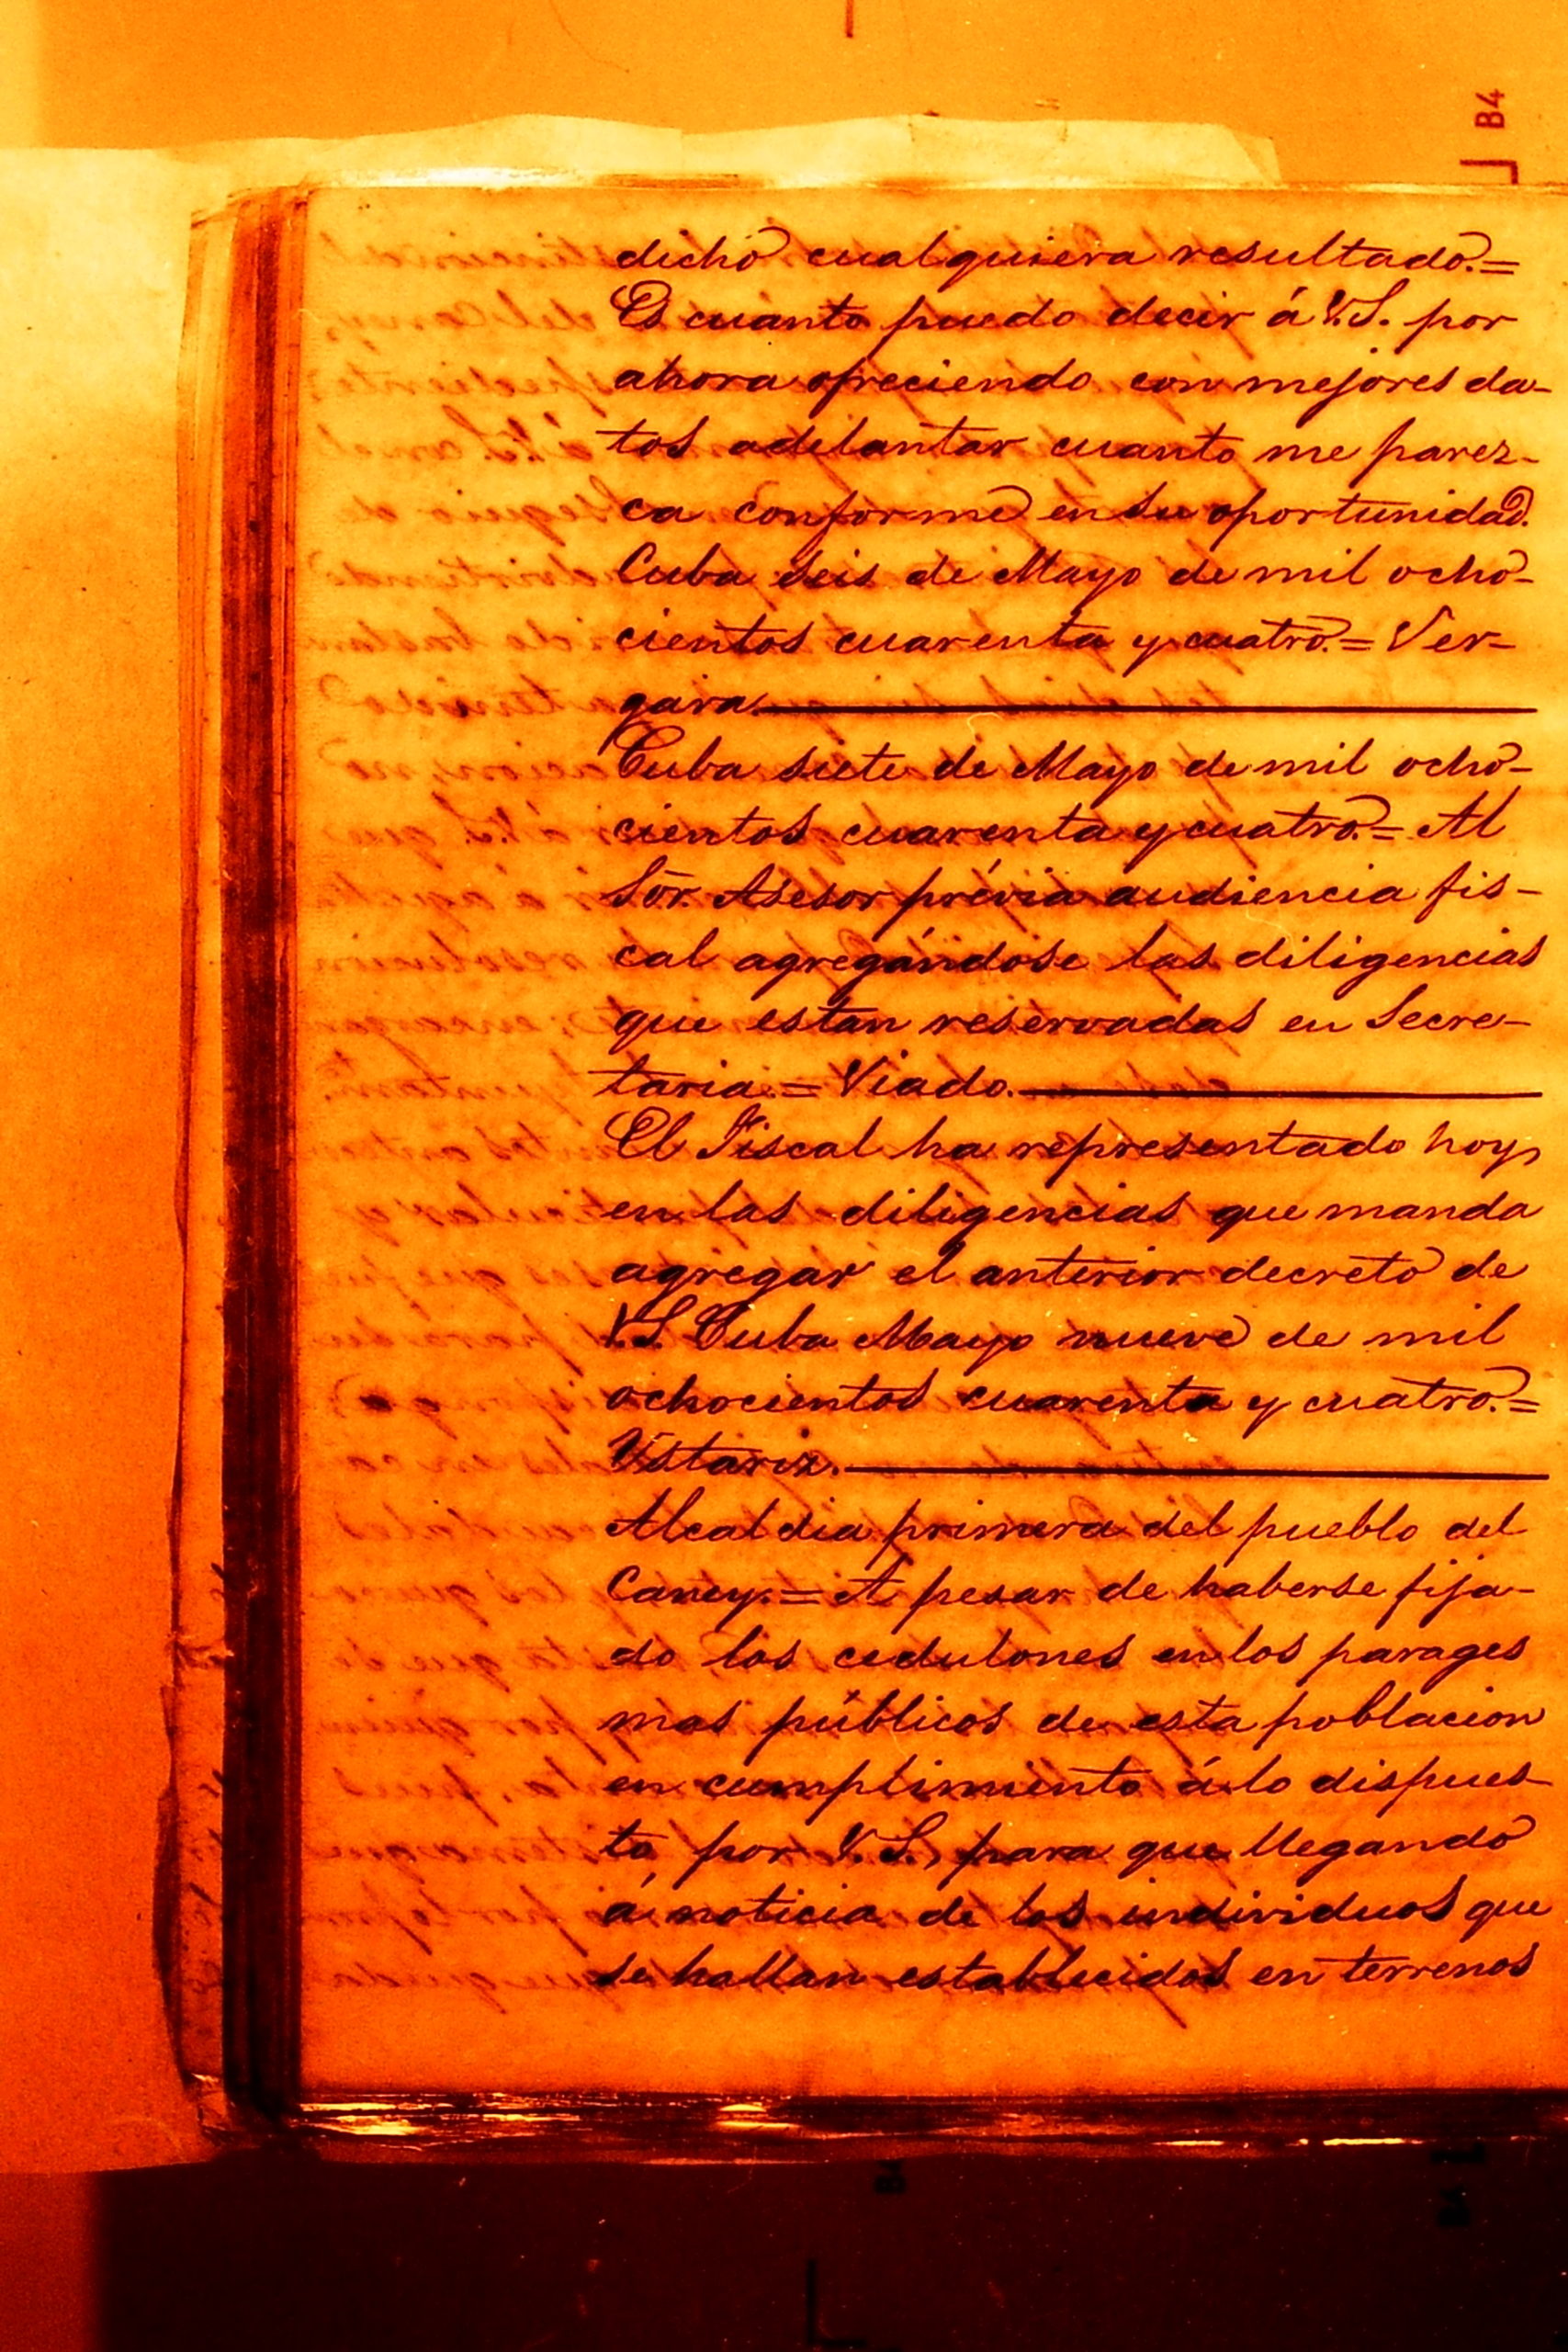 B4
dicho cualquiera resultado.=
Es cuanto puedo decir á V.S. por
ahora ofreciendo con mejores da-
tos adelantar cuanto me parez-
ca conforme en su oportunidad.
Cuba seis de Mayo de mil ocho-
cientos cuarenta y cuatro.= Ver-
gara.
Cuba siete de Mayo de mil ocho-
cientos cuarenta y cuatro.= Al
Sōr. Asesor prévia audiencia fis-
cal agregándose las diligencias
que estan reservadas en Secre-
taria.= Viado.
El Fiscal ha representado hoy
en las diligencias que manda
agregar el anterior decreto de
V.S. Cuba Mayo nueve de mil
ochocientos cuarenta y cuatro.=
Ustariz.
Alcaldia primera del pueblo del
Caney.= A pesar de haberse fija-
do los cedulones en los parages
mas públicos de esta poblacion
en cumplimiento á lo dispues-
to por V.S., para que llegando
á noticia de los individuos que
se hallan establecidos en terrenos